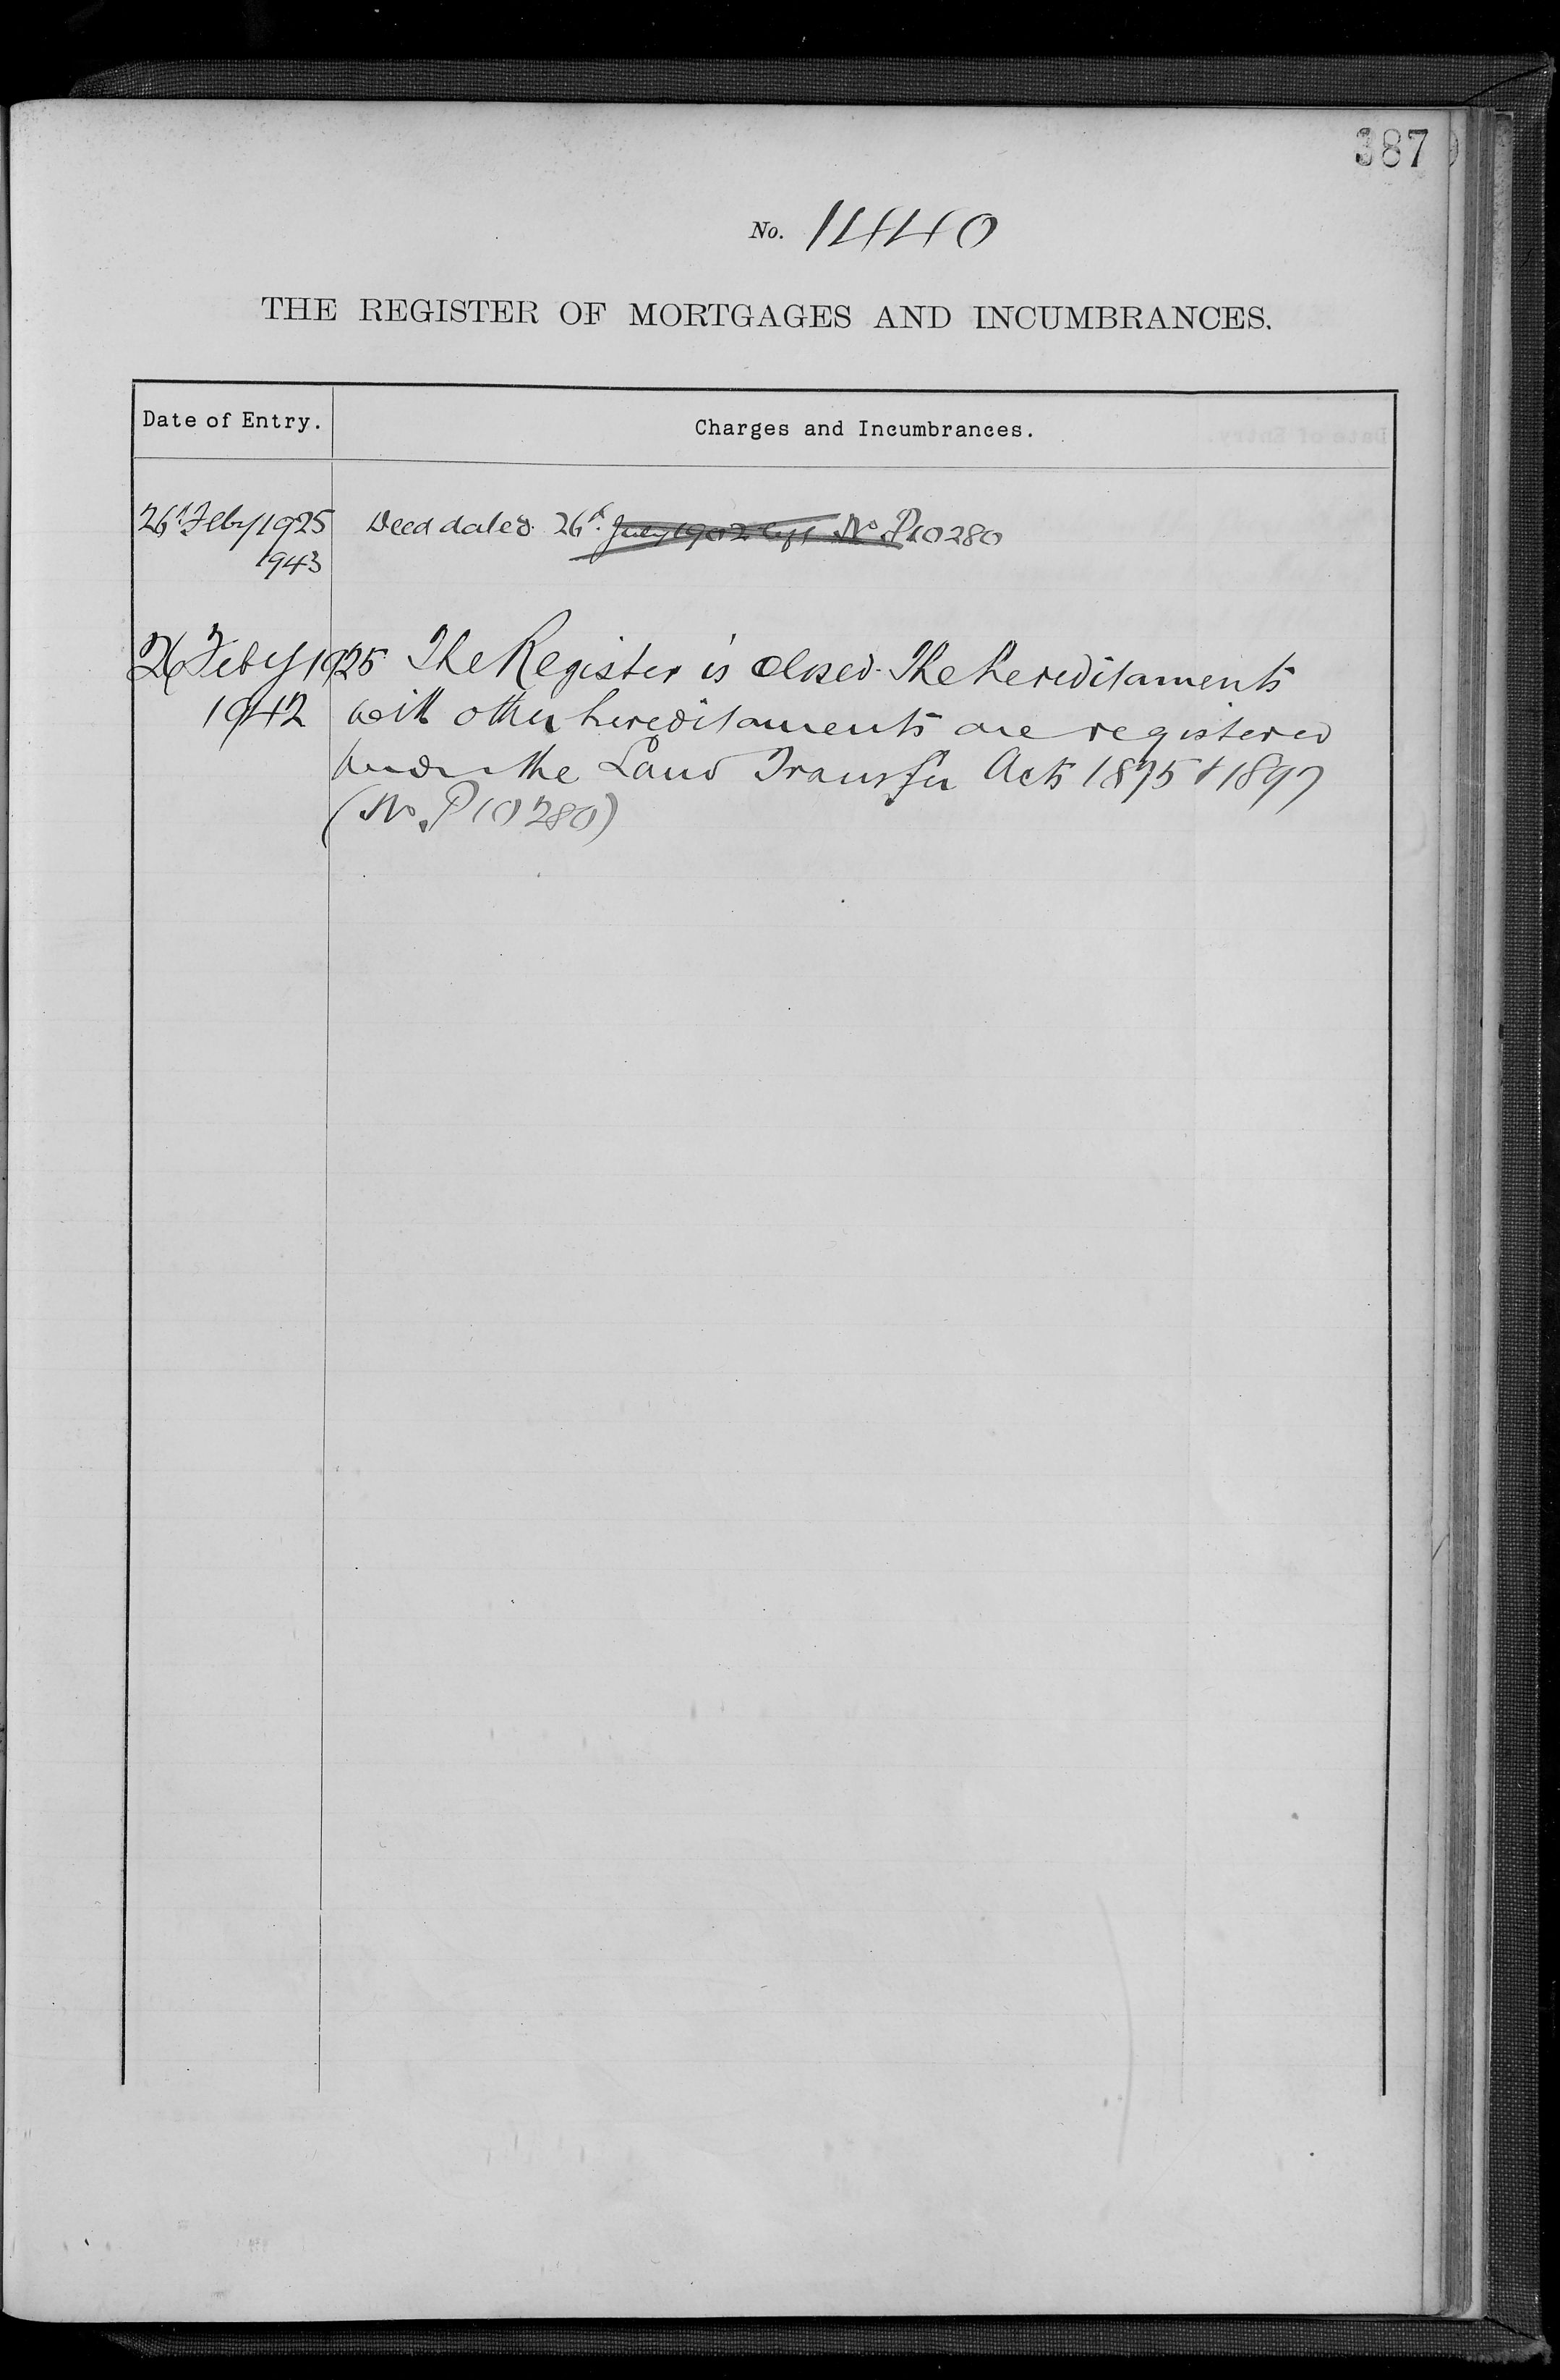 387
No. 1440
THE REGISTER OF MORTGAGES AND INCUMBRANCES.
Date of Entry. Charges and Incumbrances.
26th Feby 1925 Deed dated 26th July 1902 No. P10280
1943
26 Feby 1925 The Register is closed. The hereditaments
1942 with other hereditaments are registered
under the Land Transfer Acts 1875 & 1897
(No. P10280)